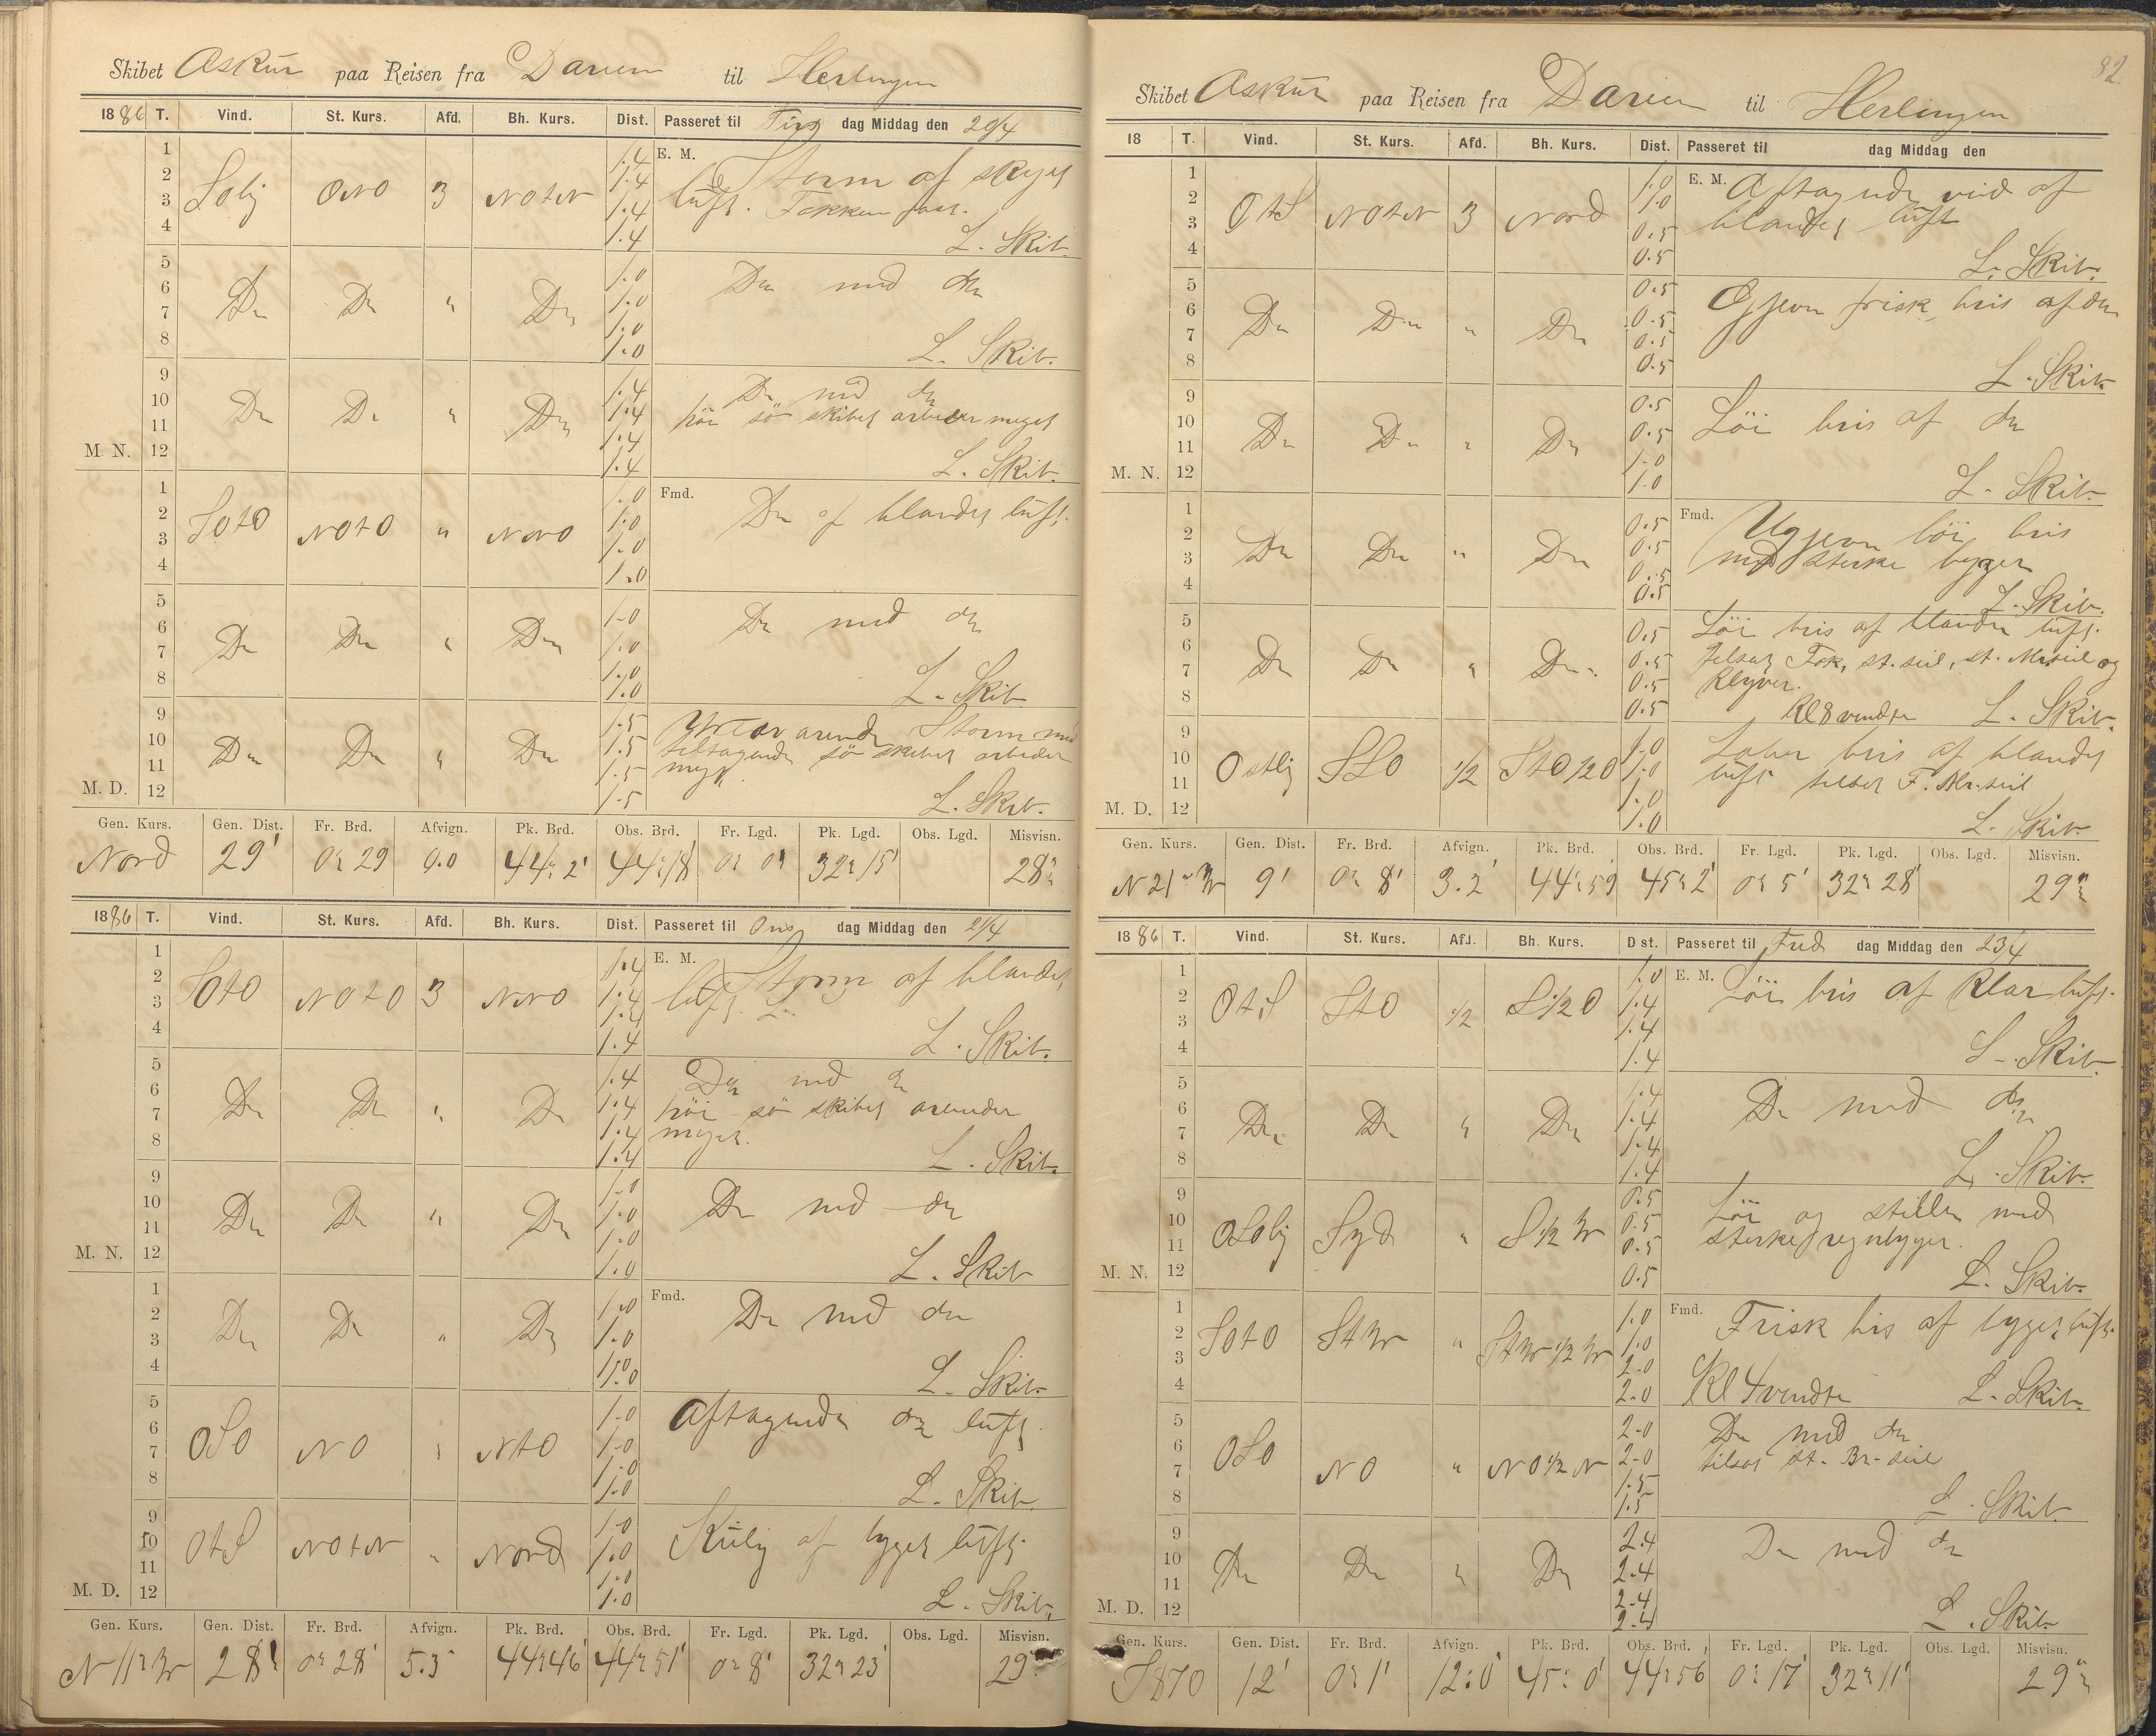 Skibet Askur paa Reisen fra Darien til Herlingen
1886 T. Vind. St. Kurs. Afd. Bh. Kurs. Dist. Passeret til Tirs dag Middag den 20/4
1 1.4 E. M. Storm af skyet
2 Solig ONO 3 NOtN 1.4 luft. Fokken fast.
3 1.4
4 1.4 L. Skib.
5 1.0
6 Do Do " Do 1.0 Do med do
7 1.0
8 1.0 L. Skib.
9 1.4 Do med do
10 Do Do " Do 1.4 höi sö skibet arbeider meget
11 1.4
M. N. 12 1.4 L. Skib.
1 1.0 Fmd.
2 SOtO NOtO " NNO 1.0 Do af blandet luft.
3 1.0
4 1.0
5 1.0
6 Do Do " Do 1.0 Do med do
7 1.0
8 1.0 L. Skib
9 1.5 Storm med
10 Do Do " Do 1.5 tiltagende sö skibet arbeider
11 1.5 meget
M. D. 12 1.5 L. Skib.
Gen. Kurs. Gen. Dist. Fr. Brd. Afvign. Pk. Brd. Obs. Brd. Fr. Lgd. Pk. Lgd. Obs. Lgd. Misvisn.
Nord 29' 0° 29 0.0 44° 2' 44° 18' 0° 0' 32° 15' 28°
1886 T. Vind. St. Kurs. Afd. Bh. Kurs. Dist. Passeret til Ons dag Middag den 21/4
1 1.4 E. M. Storm af blandet
2 SOtO NOtO 3 NNO 1.4 luft
3 1.4
4 1.4 L. Skib.
5 1.4 Do med do
6 Do Do " Do 1.4 höi sö skibet
7 1.4 meget.
8 1.4 L. Skib.
9 1.0
10 Do Do " Do 1.0 Do med do
11 1.0
M. N. 12 1.0 L. Skib
1 1.0 Fmd.
2 Do Do " Do 1.0 Do med do
3
4 1.0 L. Skib.
5 1.0 Aftagende do luft
6 OSO NO " NtO 1.0
7 1.0
8 1.0 L. Skib.
9 1.0
10 OtS NOtN " Nord 1.0 Kulig af bygget luft.
11 1.0
M. D. 12 1.0 L. Skib.
Gen. Kurs. Gen. Dist. Fr. Brd. Afvign. Pk. Brd. Obs. Brd. Fr. Lgd. Pk. Lgd. Obs. Lgd. Misvisn.
N 11° W 28' 0° 28' 5.3 44° 46' 44° 51' 0° 8' 32° 23' 29°
82
Skibet Askur paa Reisen fra Darien til Herlingen
18 T. Vind. St. Kurs. Afd. Bh. Kurs. Dist. Passeret til dag Middag den
1 1.0 E. M. Aftagende vind af
2 OtS NOtN 3 Nord 1.0 blandet luft
3 0.5
4 0.5 L. Skib.
5 0.5 frisk bris af do
6 Do Do " Do 0.5
7 0.5
8 0.5 L. Skib
9 0.5 Löi bris af do
10 Do Do " Do 0.5
11 1.0
M. N. 12 1.0 L. Skib.
1 0.5 Fmd. Ugjevn löi bris
2 Do Do " Do 0.5 med sterke byger
3 0.5
4 0.5 L. Skib.
5 0.5 Löi bris af blandet luft.
6 Do Do " Do 0.5 tilsat Fok, st. seil, st. Mr. seil og
7 0.5 Klyver.
8 0.5 Kl 8 vendte L. Skib.
9 1.0 Laber bris af blandet
10 Ostlig SSO 1/2 StO 1/2 O 1.0 luft tilsat F. Mr. seil
11 1.0
M. D. 12 1.0 L. Skib.
Gen. Kurs. Gen. Dist. Fr. Brd. Afvign. Pk. Brd. Obs. Brd. Fr. Lgd. Pk. Lgd. Obs. Lgd. Misvisn.
N 21° W 9' 0° 8' 3.2' 44° 59' 45° 2' 0° 5' 32° 28' 29°
1886 T. Vind. St. Kurs. Afd. Bh. Kurs. Dist. Passeret til Fred dag Middag den 23/4
1 1.0 E. M. Löi bris af klar luft.
2 OtS StO 1/2 S 1/2 O 1.4
3 1.4
4 1.4 L. Skib
5 1.4
6 Do Do " Do 1.4 Do med do
7 1.4
8 1.4 L. Skib.
9 0.5 Löi og stille med
10 OSOlig Syd " S 1/2 W 0.5 sterke regnbyger.
11 0.5
M. N. 12 0.5 L. Skib.
1 1.0 Fmd. Frisk bris af bygget luft.
2 SOtO StW " StW 1/2 W 1.0
3 2.0
4 2.0 Kl 4 vendte L. Skib.
5 2.0 Do med do
6 OSO NO " NO 1/2 N 2.0 tilsat st. Br. seil
7 1.5
8 1.5 L. Skib.
9 2.4
10 Do Do " Do 2.4 Do med do
11 2.4
M. D. 12 2.4 L. Skib.
Gen. Kurs. Gen. Dist. Fr. Brd. Afvign. Pk. Brd. Obs. Brd. Fr. Lgd. Pk. Lgd. Obs. Lgd. Misvisn.
S 87 O 12' 0° 1' 12.0' 45° 0' 44° 56' 0° 17' 32° 11' 29°